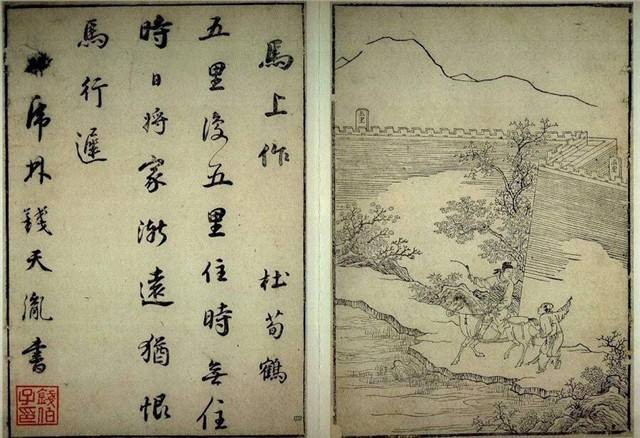 馬上作 杜荀鶴
五里復五里住時無住
時日將家漸遠猶恨
馬行遲
虎林錢天胤書
五里